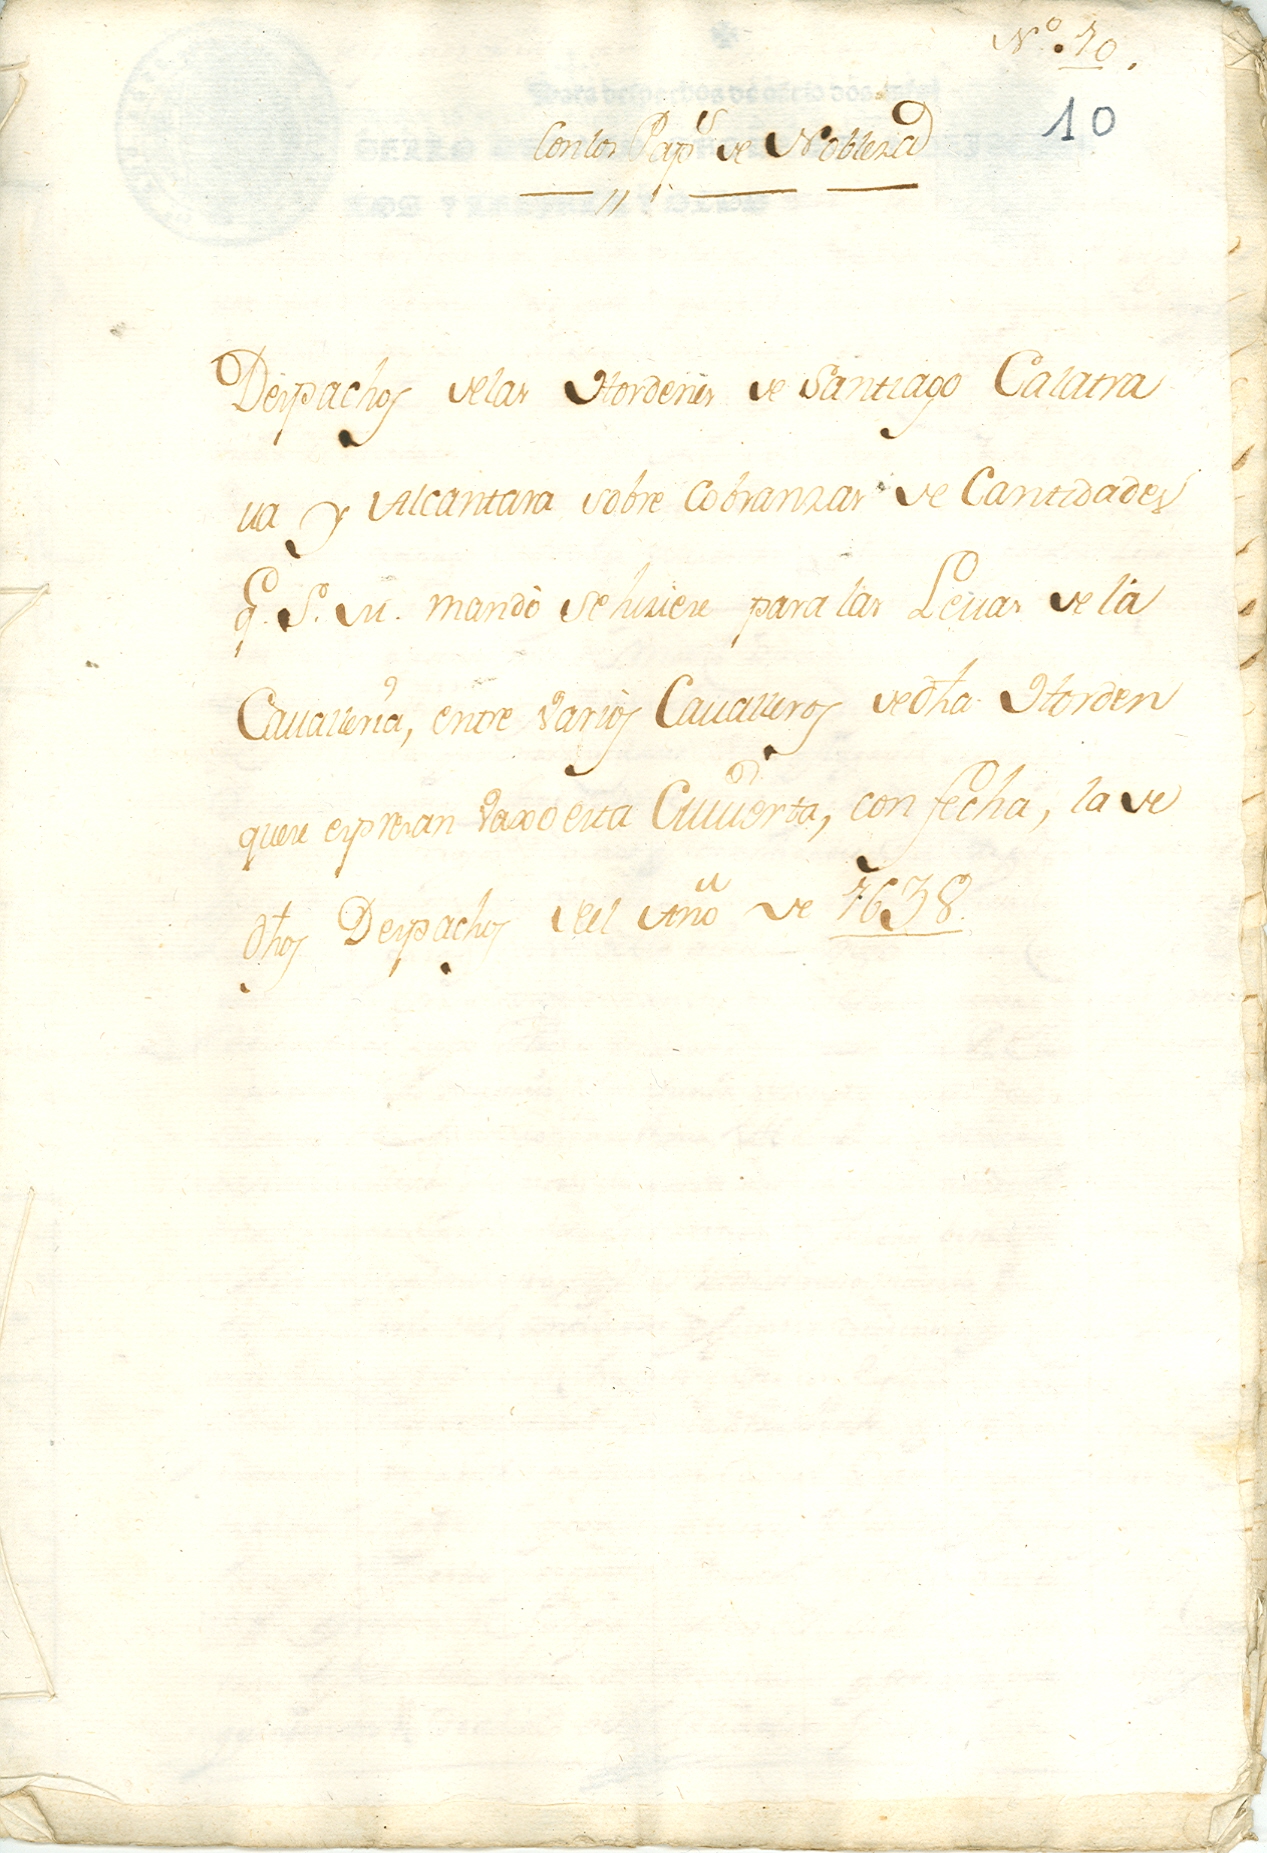 Nº. 10.
10
Con los Pap.s de Nobleza
Despachos de las Hordenes de Santiago Calatra
ua y Alcantara sobre Cobranzas de Cantidades
q. S. M. mandò se hiziese para las Leuas de la
Cauallería, entre varios Caualleros de dha Horden
que se expresan vaxo esta Cuuierta, con fecha, la de
dhos Despachos del Año de 1638.